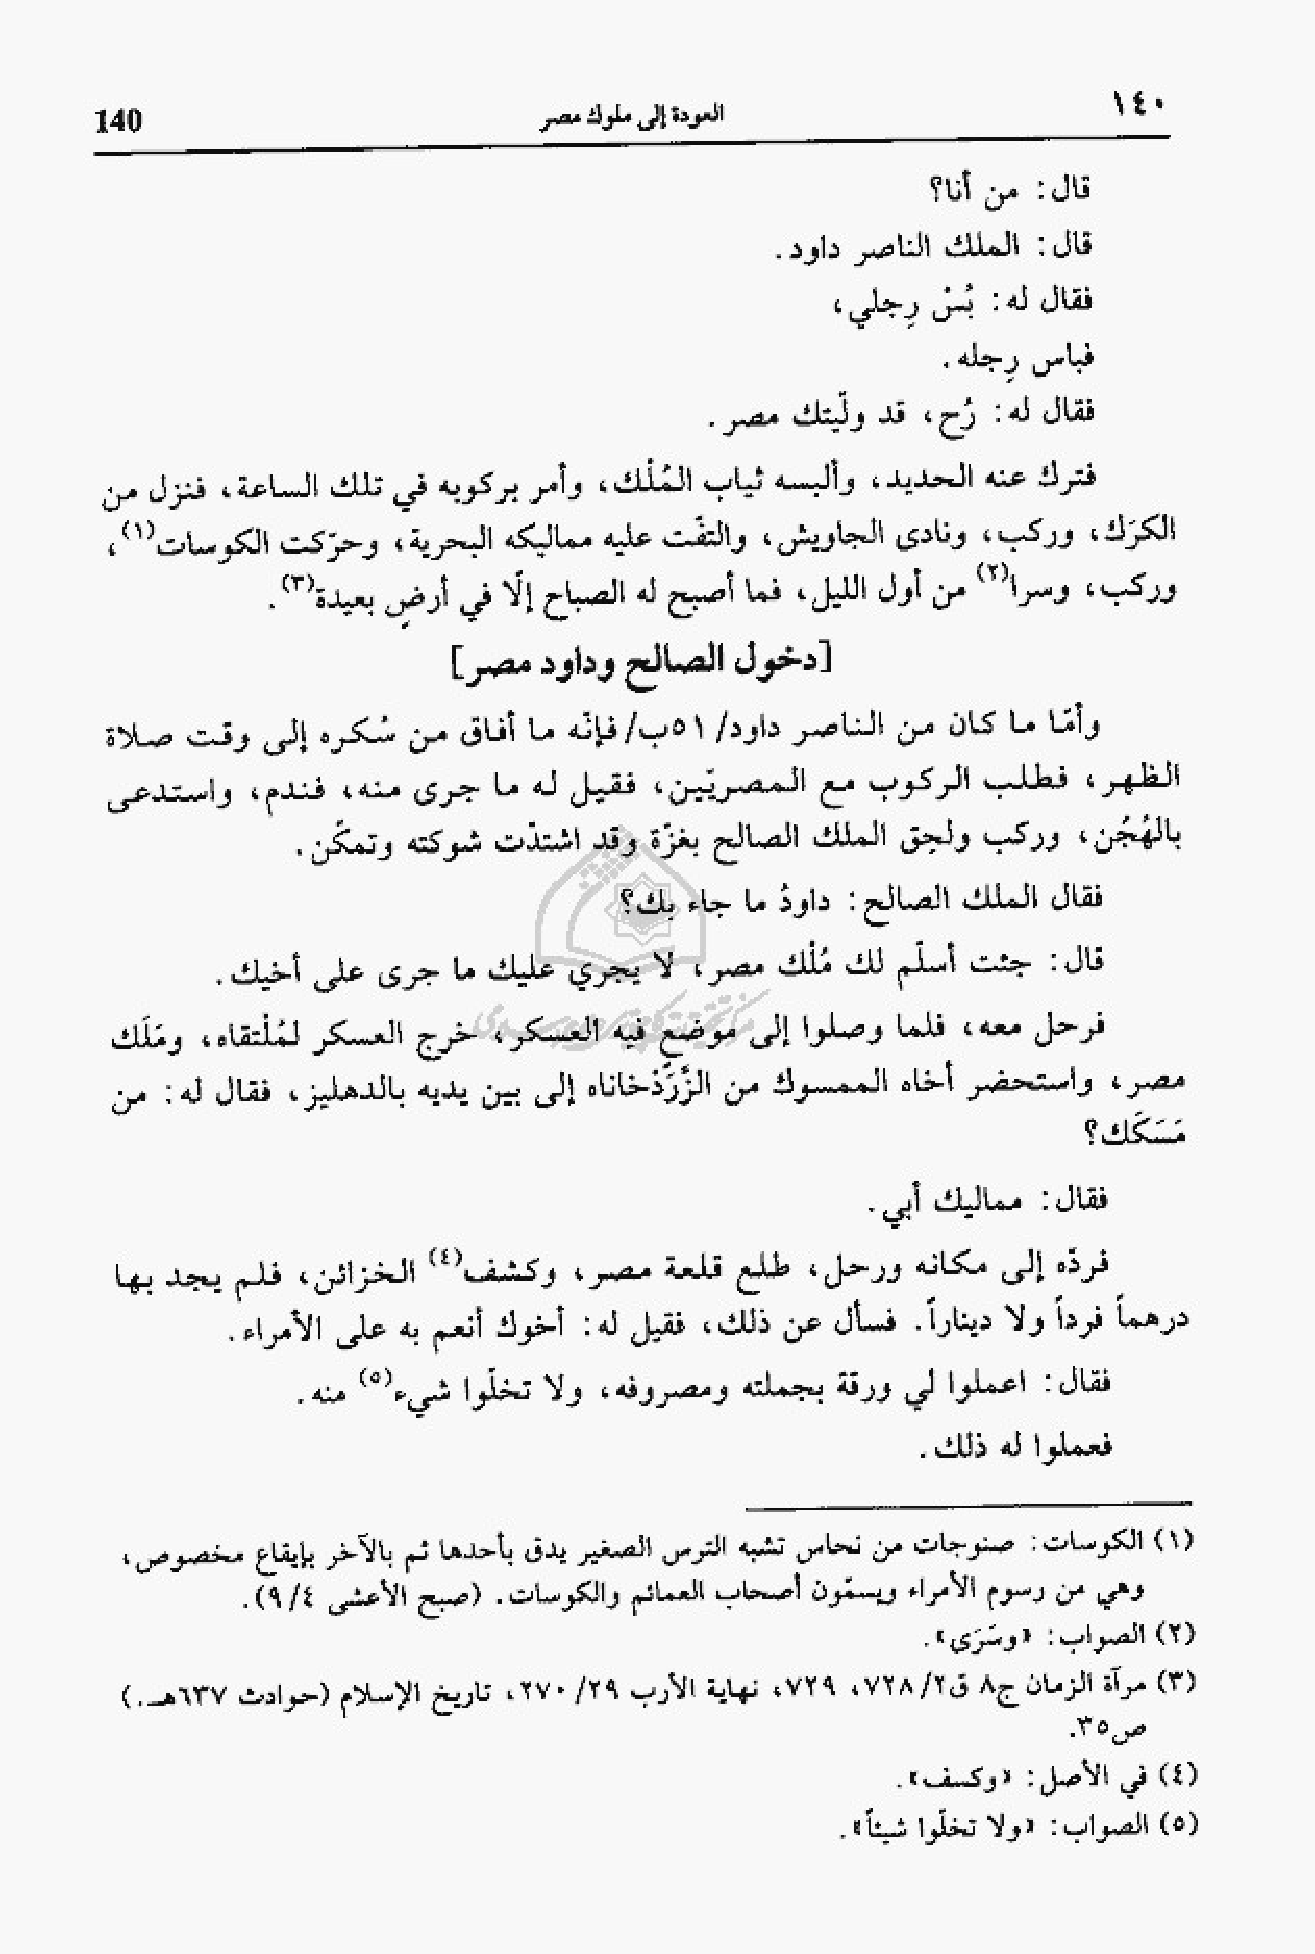 ١٤٠
العودة إلى ملوك مصر
140
قال: من أنا؟
قال: الملك الناصر داود.
فقال له: بُسْ رِجلي،
فباس رِجله.
فقال له: رُح، قد ولّيتك مصر.
فترك عنه الحديد، وألبسه ثياب المُلْك، وأمر بركوبه في تلك الساعة، فنزل من
الكرَك، وركب، ونادى الجاويش، والتفّت عليه مماليكه البحرية، وحرّكت الكوسات(١)،
وركب، وسرا(٢) من أول الليل، فما أصبح له الصباح إلّا في أرضٍ بعيدة(٣).
[دخول الصالح وداود مصر]
وأمّا ما كان من الناصر داود/ ٥١ب/ فإنّه ما أفاق من سُكره إلى وقت صلاة
الظهر، فطلب الركوب مع المصريّين، فقيل له ما جرى منه، فندم، واستدعى
بالهُجُن، وركب ولحِق الملك الصالح بغزّة وقد اشتدّت شوكته وتمكّن.
فقال الملك الصالح: داودُ ما جاء بك؟
قال: جئت أسلّم لك مُلْك مصر، لا يجري عليك ما جرى على أخيك.
فرحل معه، فلما وصلوا إلى موضع فيه العسكر، خرج العسكر لمُلْتقاه، ومَلَك
مصر، واستحضر أخاه الممسوك من الزَّرَدْخاناه إلى بين يديه بالدهليز، فقال له: من
مَسَكَك؟
فقال: مماليك أبي.
فردّه إلى مكانه ورحل، طلع قلعة مصر، وكشف(٤) الخزائن، فلم يجد بها
درهماً فرداً ولا ديناراً. فسأل عن ذلك، فقيل له: أخوك أنعم به على الأمراء.
فقال: اعملوا لي ورقة بجملته ومصروفه، ولا تخلّوا شيء(٥) منه.
فعملوا له ذلك.
(١) الكوسات: صنوجات من نحاس تشبه الترس الصغير يدق بأحدها ثم بالآخر بإيقاع مخصوص،
وهي من رسوم الأمراء ويسمّون أصحاب العمائم والكوسات. (صبح الأعشى ٩/٤).
(٢) الصواب: «وسَرَى».
(٣) مرآة الزمان ج٨ ق٢/ ٧٢٨، ٧٢٩، نهاية الأرب ٢٩/ ٢٧٠، تاريخ الإسلام (حوادث ٦٣٧هـ.)
ص٣٥.
(٤) في الأصل: «وكسف».
(٥) الصواب: «ولا تخلّوا شيئاً».